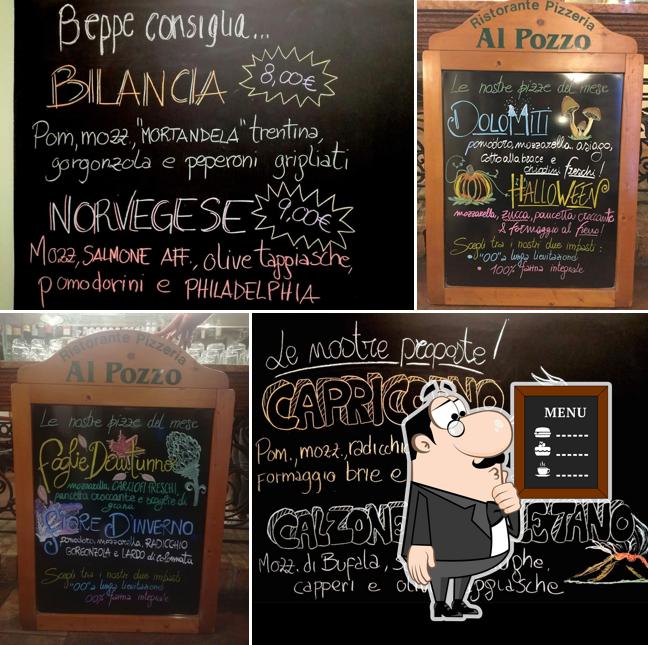 Beppe consiglia...
BILANCIA 8,00€
Pom, mozz., "MORTANDELA" trentina,
gorgonzola e peperoni grigliati
NORVEGESE 9,00€
Mozz, SALMONE AFF., olive taggiasche,
pomodorini e PHILADELPHIA
Ristorante Pizzeria
Al Pozzo
Le nostre pizze del mese
DOLOMITI
pomodoro, mozzarella, asiago,
cotto alla brace e
chiodini freschi!
HALLOWEEN
mozzarella, zucca, pancetta croccante
& formaggio al fieno!
Scegli tra i nostri due impasti:
• "00" a lunga lievitazione
• 100% farina integrale
Ristorante Pizzeria
Al Pozzo
Le nostre pizze del mese
Foglie D'autunno
mozzarella, CARCIOFI FRESCHI,
pancetta croccante e scaglie di
grana
FIORE D'INVERNO
pomodoro, mozzarella, RADICCHIO
GORGONZOLA e LARDO di colonnata
Scegli tra i nostri due impasti
"00" a lunga lievitazione
100% farina integrale
Le nostre proposte!
CAPRICORNO
Pom., mozz., radicchi
Formaggio brie e
CALZONE
Mozz. di Bufala,
capperi e
MENU